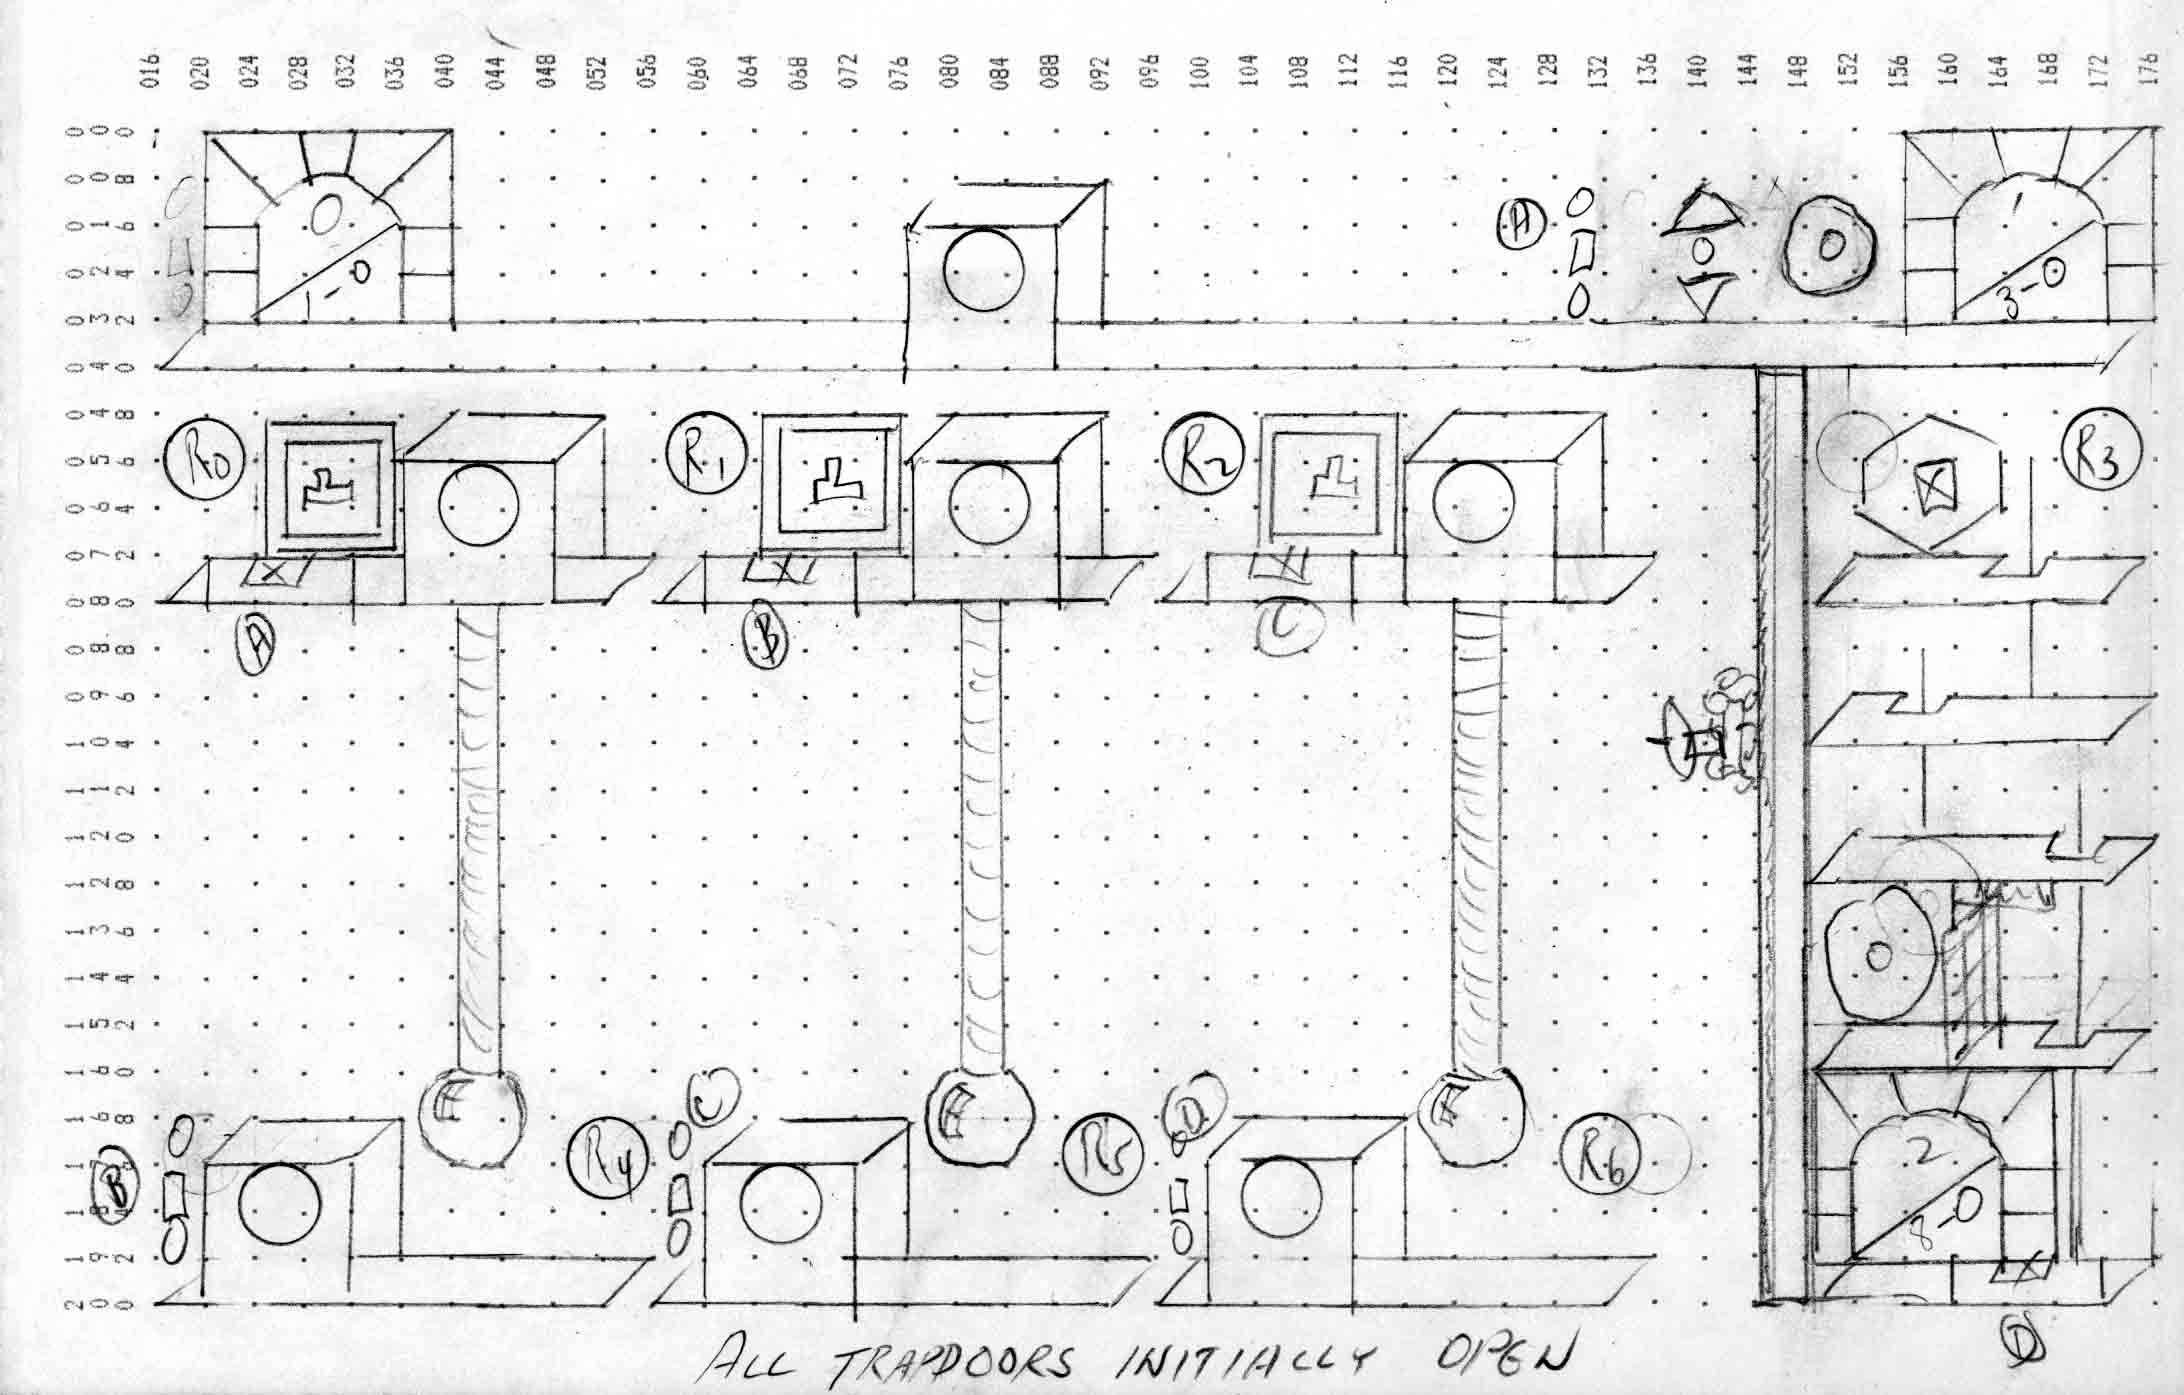 016 020 024 028 032 036 040 044 048 052 056 060 064 068 072 076 080 084 088 092 096 100 104 108 112 116 120 124 128 132 136 140 144 148 152 156 160 164 168 172 176
000
008
016
024
032
040
048
056
064
072
080
088
096
104
112
120
128
136
144
152
160
168
176
184
192
200
0
1-0
A
1
3-0
R0
R1
R2
R3
A
B
C
B
R4
C
R5
D
R6
2
8-0
D
ALL TRAPDOORS INITIALLY OPEN